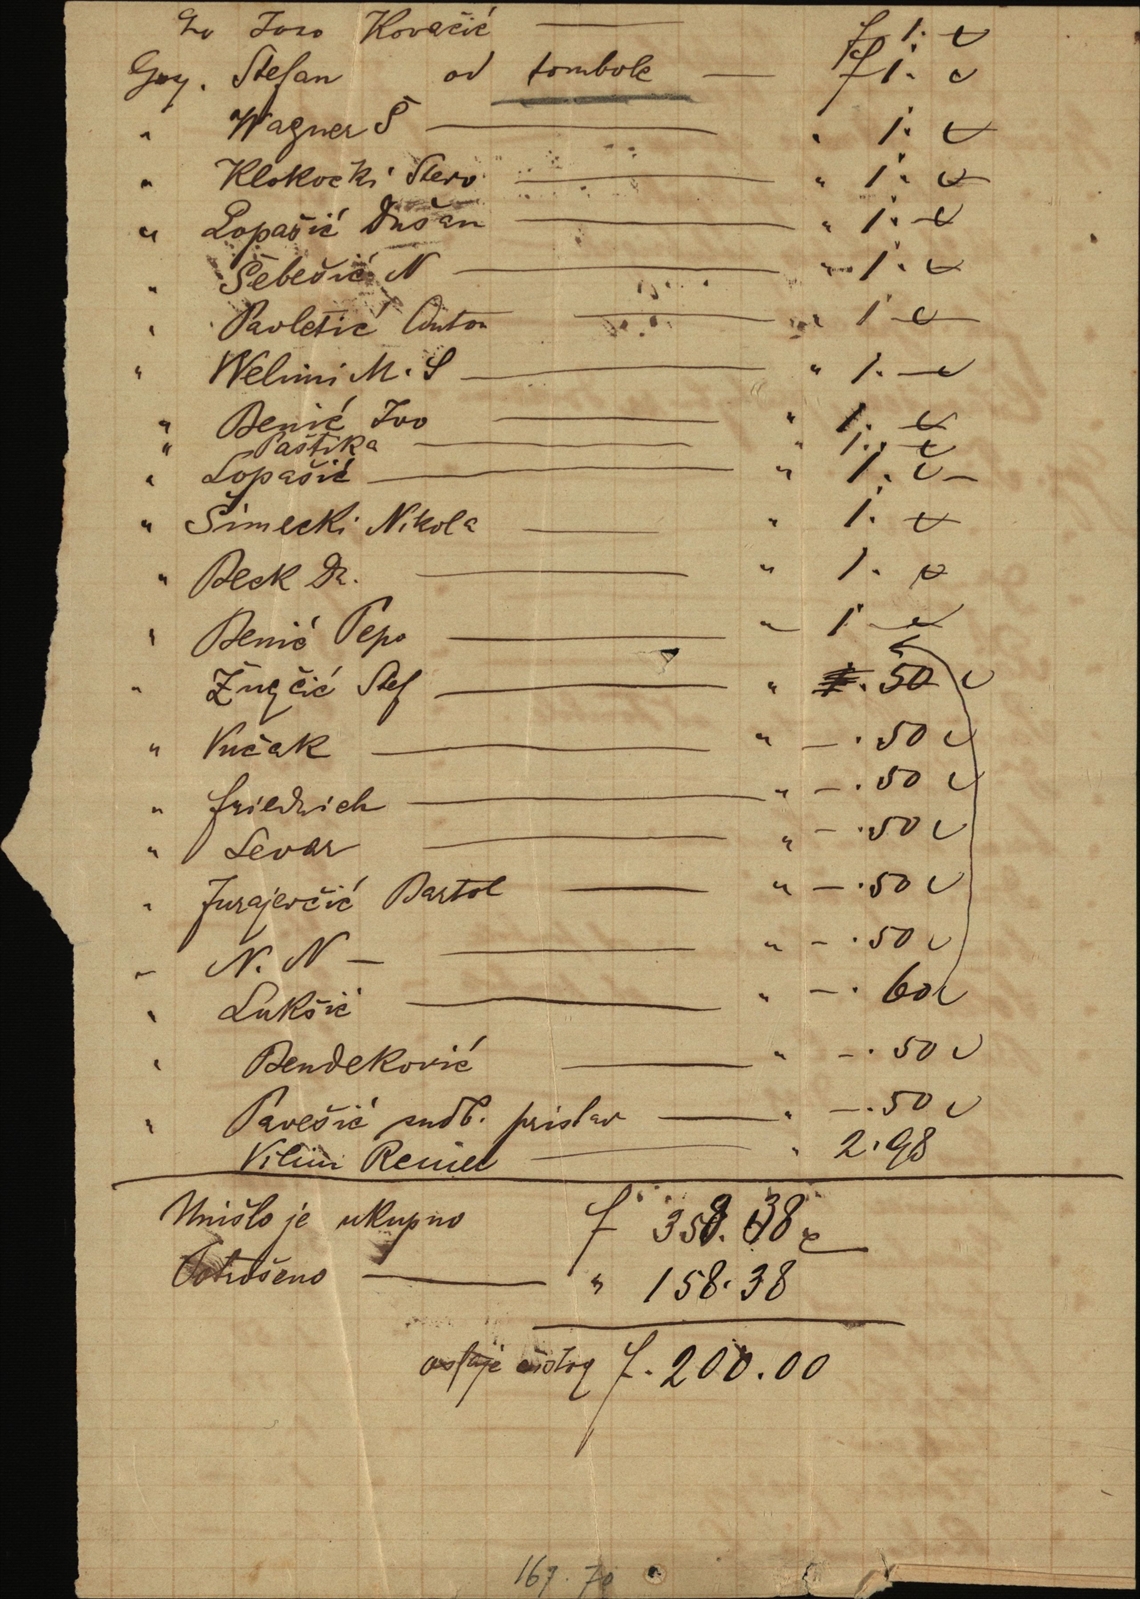 Joso Kovačić — f 1. —
Gosp. Stefan od tombole — f 1. —
" Wagner S — " 1. —
" Klokočki Stevo — " 1. —
" Lopašić Dušan — " 1. —
" Šebešić N — " 1. —
" Pavletić Anton — " 1 —
" Welimi M. S — " 1. —
" Benić Ivo — " 1. —
" Paštika — " 1. —
" Lopašić — " 1. —
" Šimecki Nikola — " 1. —
" Beck Dr. — " 1. —
" Benić Pepo — " 1 —
" Žugčić Stef — " . 50
" Vučak — " — . 50
" Friedrich — " — . 50
" Levar — " — . 50
" Jurajevčić Bartol — " — . 50
" N. N — " — . 50
" Lukšić — " — . 60
" Bendeković — " — . 50
" Pavešić sudb. pristav — " — . 50
Vilim Reiner — " 2.98
Unišlo je ukupno f 358.38
Potrošeno — " 158.38
ostaje čistog f. 200.00
167.70